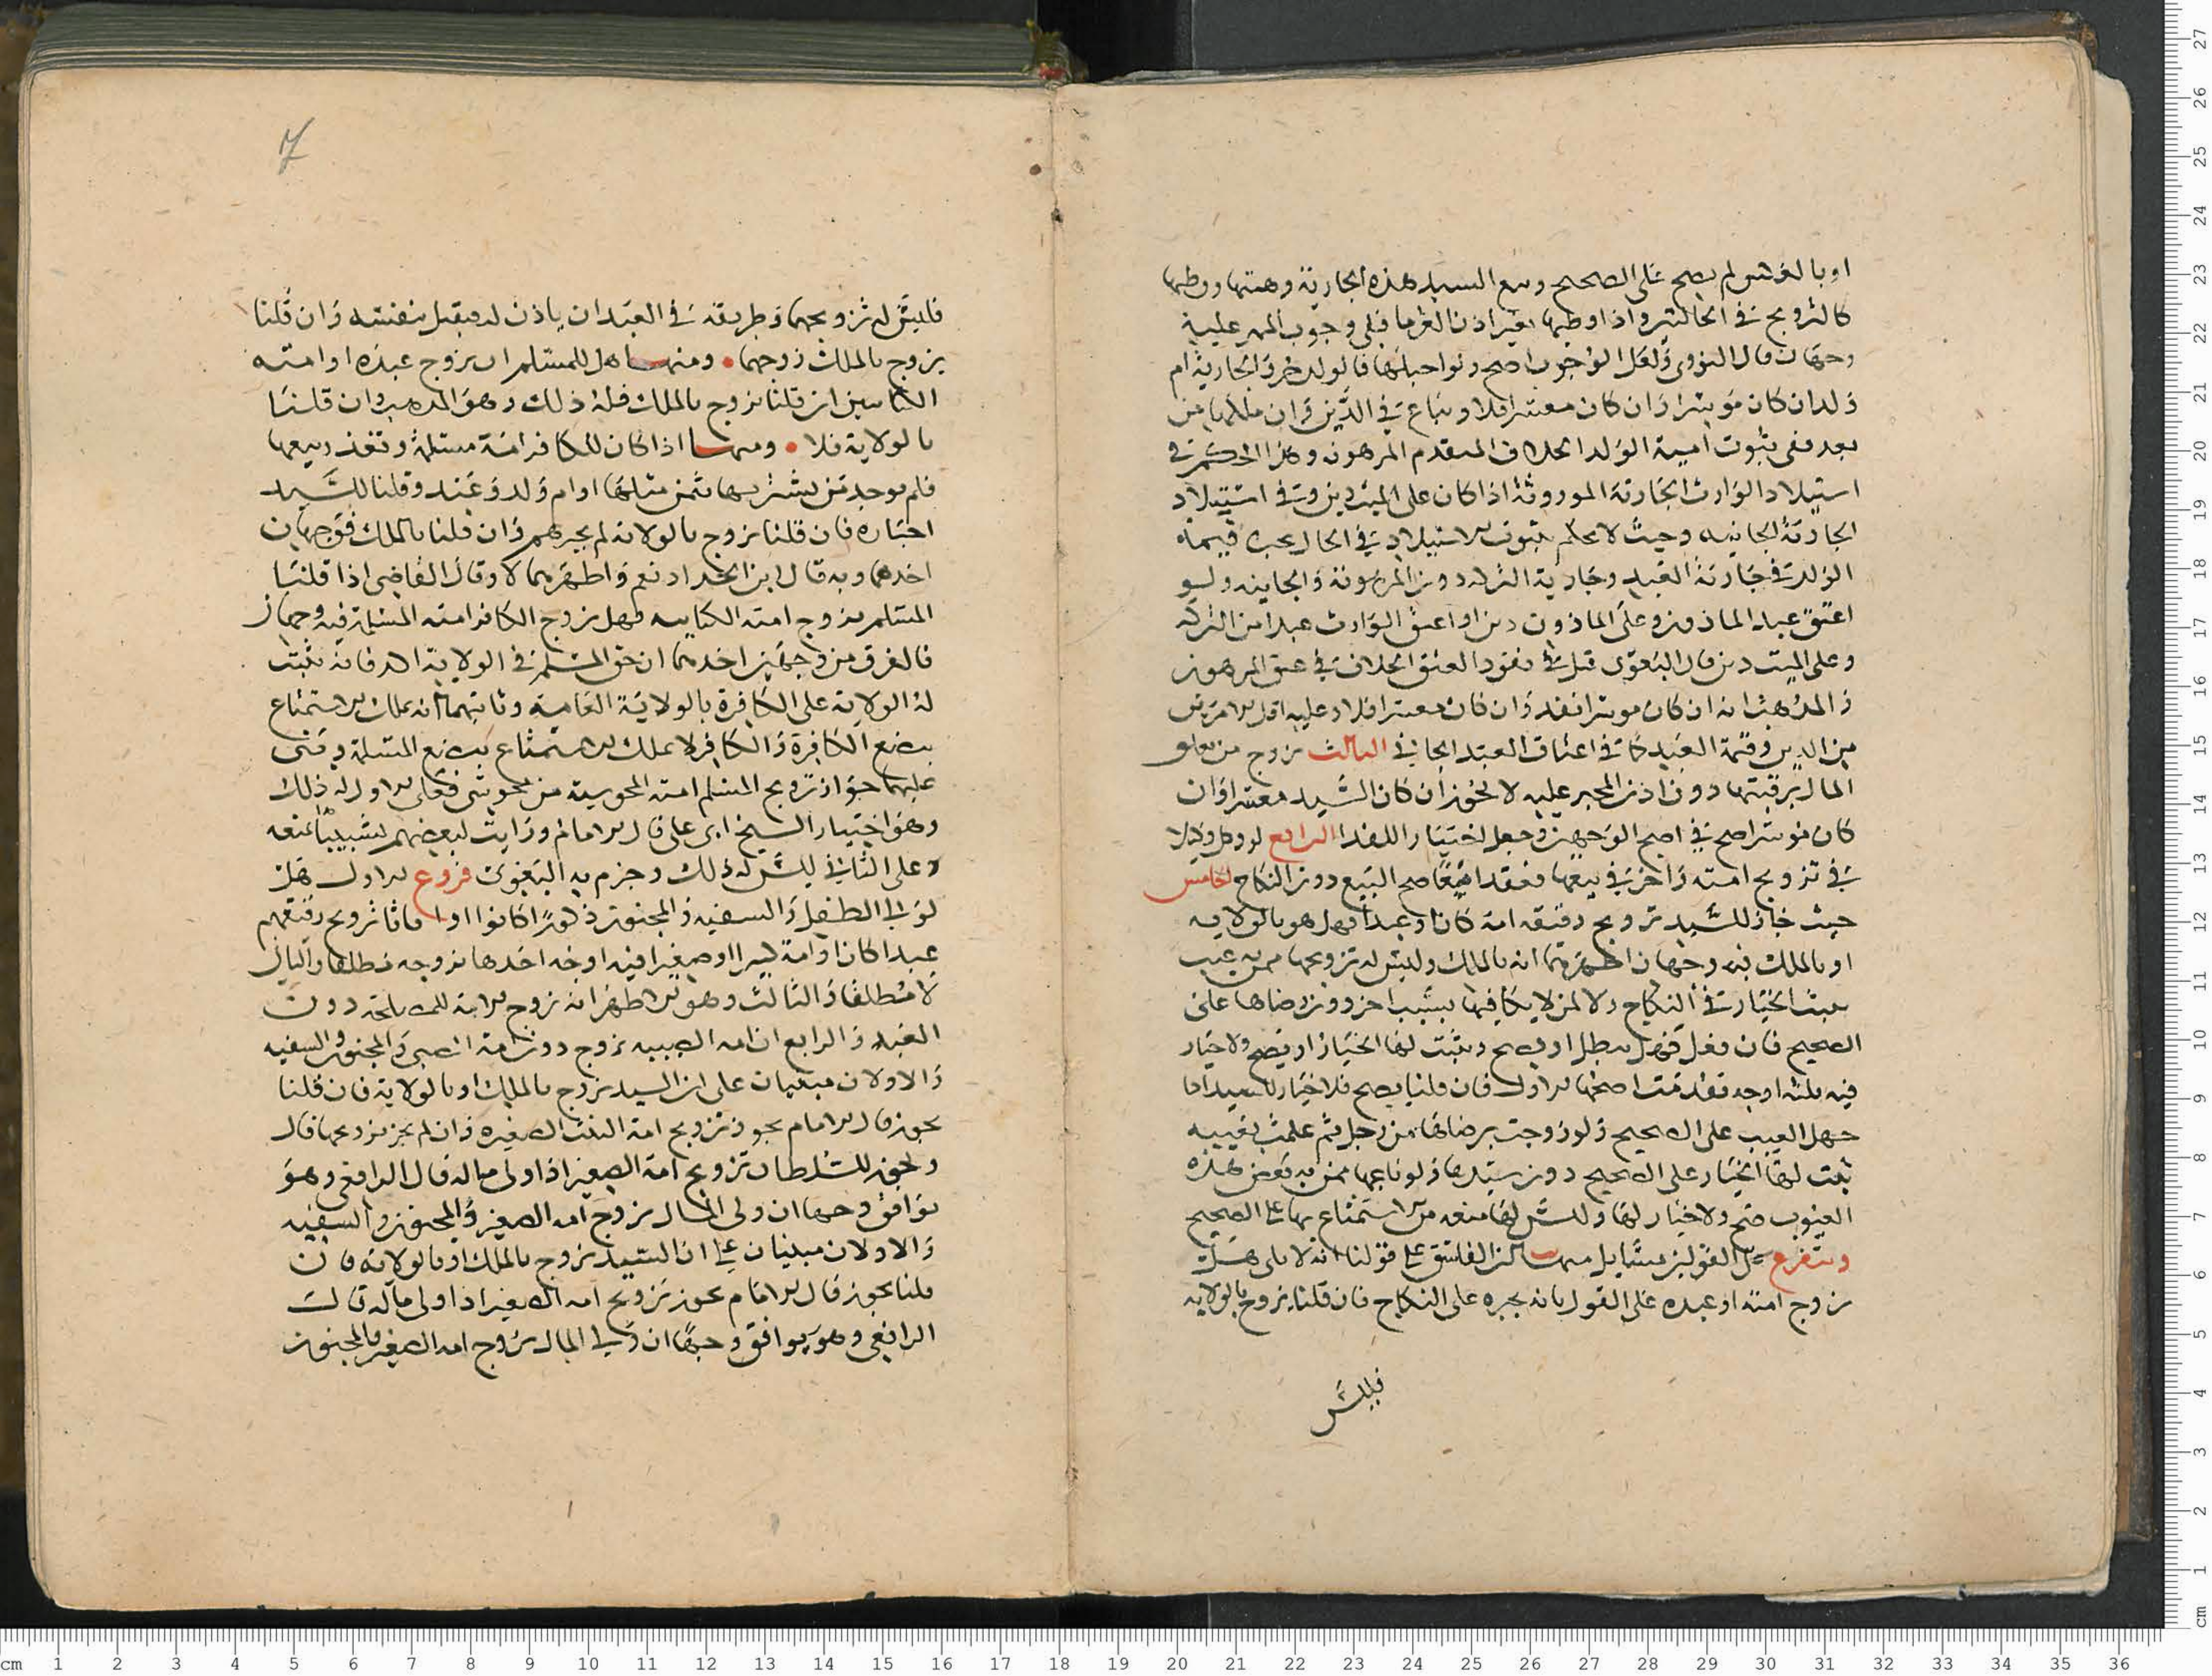 او بالعكس لم يصح على الصحيح وبيع السيد هذه الجارية وهبتها ووطيها
كالتزويج في الحالتين واذا وطيها بغير اذن الغرما فبلى وجوب المهر عليه
وجهان قال النووي ولعل الوجوب اصح ولو احبلها فالولد حر والجارية ام
ولد ان كان موسرا وان كان معسرا فلا وتباع في الدين فان ملكها من
بعد ففى ثبوت امية الولد الخلاف المتقدم المرهونه وهذا الحكم في
استيلاد الوارث الجارية الموروثة اذا كان على الميت دين وفي استيلاد
الجارية الجانيه وحيث لا نحكم بثبوت الاستيلاد في الحال يجب قيمة
الولد في جارية العبد وجارية التركه دون المرهونة والجانيه ولو
اعتق عبد الماذون وعلى الماذون دين او اعتق الوارث عبدا من التركه
وعلى الميت دين قال البغوى قبل في نفوذ العتق الخلاف في عتق المرهون
والمذهب انه ان كان موسرا نفذ وان كان معسرا فلا وعليه اقل الامرين
من الدين وقيمة العبد كما في اعتاق العبد الجاني الثالث تزوج من تعلق
المال برقبتها دون اذن المجني عليه لا يجوز ان كان السيد معسرا وان
كان موسرا صح في اصح الوجهين وجعل اختيارا للفدا الرابع لو وكل وكيلا
في تزويج امته واخر في بيعها فعقدا معا صح البيع دون النكاح الخامس
حيث جاز للسيد تزويج رقيقه امة كان او عبدا فهل هو بالولايه
او بالملك فيه وجهان اظهرهما انه بالملك وليس له تزويجها ممن به عيب
يثبت الخيار في النكاح ولا لمن لا يكافيها بسبب اخر دون رضاها على
الصحيح فان فعل فهل يبطل او يصح ويثبت لها الخيار او يصح ولا خيار
فيه ثلثه اوجه تقدمت اصحها الاول فان قلنا يصح فلا خيار للسيد اما
جهل العيب على الصحيح ولو زوجت برضاها من رجل ثم علمت بعيبه
ثبت لها الخيار على الصحيح دون سيدها ولو باعها ممن به بعض هذه
العيوب صح ولا خيار لها وليس لها منعه من استمتاع بها على الصحيح
ويتفرع على القولين مسايل منها ان الفاسق على قولنا انه لا يلى هل
يزوج امته او عبده على القول بانه يجبره على النكاح فان قلنا يزوج بالولايه
فليس
7
فليس له تزويجها وطريقه في العبد ان ياذن له فيقبل بنفسه وان قلنا
يزوج بالملك زوجها ومنها هل للمسلم ان يزوج عبده او امته
الكتابيين ان قلنا يزوج بالملك فله ذلك وهو المذهب وان قلنا
بالولاية فلا ومنها اذا كان للكافر امة مسلمة وتعذر بيعها
فلم يوجد من يشتريها بثمن مثلها او ام ولد وعبد وقلنا للسيد
اجباره فان قلنا يزوج بالولاية لم يجبرهم وان قلنا بالملك فوجهان
احدهما وبه قال ابن الحداد نعم واظهرهما لا وقال القاضي اذا قلنا
المسلم يزوج امته الكتابيه فهل يزوج الكافر امته المسلمة فيه وجهان
فالفرق من وجهين احدهما ان حق المسلم في الولاية اكد فانه يثبت
له الولاية على الكافرة بالولاية العامة وثانيهما انه يملك الاستمتاع
ببضع الكافرة والكافر لا يملك الاستمتاع ببضع المسلمة وبنى
عليهما جواز تزويج المسلم امته المجوسية من مجوسى فعلى الاول له ذلك
وهو اختيار الشيخ ابى على قال الامام ورايت لبعضهم تشبيبا بمنعه
وعلى الثاني ليس له ذلك وجزم به البغوى فروع الاول هل
لولى الطفل والسفيه والمجنون ذكورا كانوا او اناثا تزويج رقيقهم
عبدا كان او امة كبيرا او صغيرا فيه اوجه احدها يزوجه مطلقا والثاني
لا مطلقا والثالث وهو الاظهر انه يزوج الامة للمصلحة دون
العبد والرابع ان امه الصبيه تزوج دون امة الصبى والمجنون والسفيه
والاولان مبنيان على ان السيد يزوج بالملك او بالولاية فان قلنا
يجوز قال الامام يجوز تزويج امة البنت الصغيرة وان لم يجز تزويجها قال
ويجوز للسلطان تزويج امة الصغير اذا ولى ماله قال الرافعى وهو
يوافق وجها ان ولى المال يزوج امه الصغير والمجنون والسفيه
والاولان مبنيان على ان السيد يزوج بالملك او بالولاية فان
قلنا يجوز قال الامام يجوز تزويج امه الصغير اذا ولى ماله قال
الرافعى وهو يوافق وجها ان ولى المال يزوج امه الصغير والمجنون